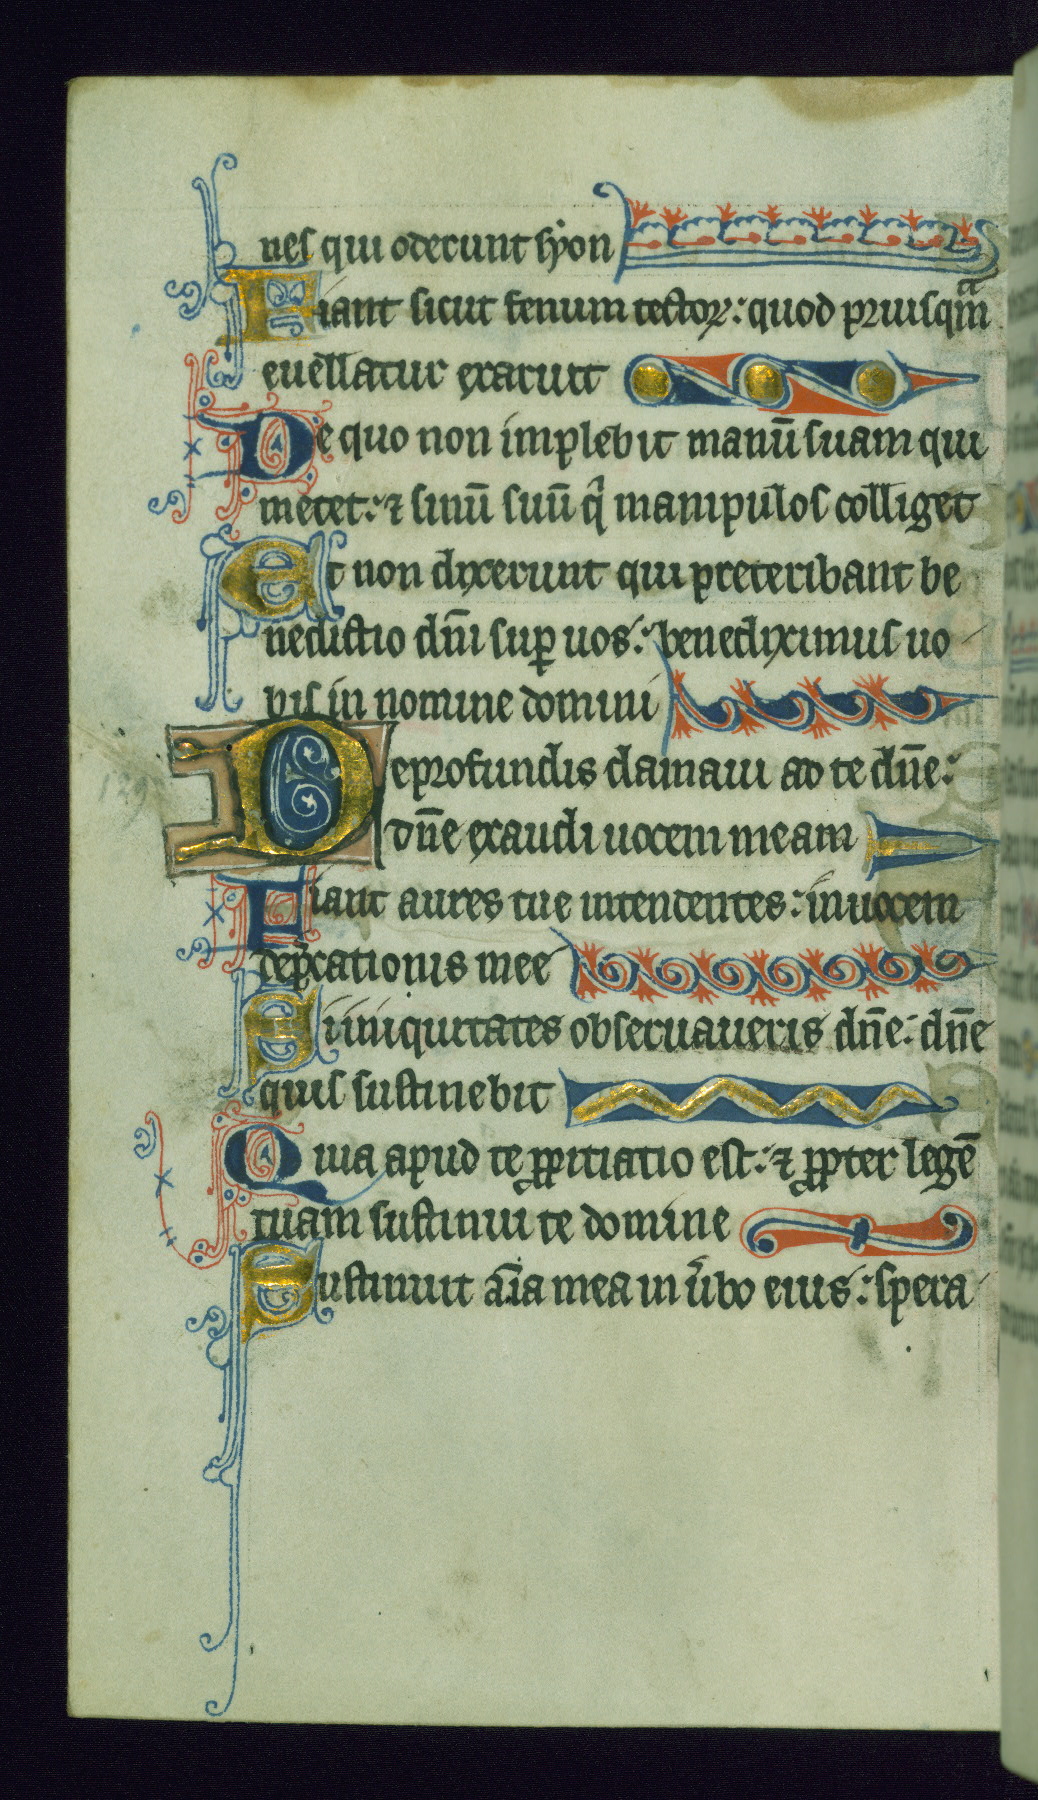 nes qui oderunt syon
Fiant sicut fenum tectoꝝ: quod priusq̄m
euellatur exaruit
De quo non implebit manū suam qui
metet: ⁊ sinū suū qͥ manipulos colliget
Et non dixerunt qui preteribant be
nedictio dn̄i suꝑ uos: benediximus uo
bis in nomine domini
De profundis clamaui ad te dn̄e:
dn̄e exaudi uocem meam
Fiant aures tue intendentes: in uocem
dep̄cationis mee
Si iniquitates obseruaueris dn̄e: dn̄e
quis sustinebit
Quia apud te ꝓpitiatio est: ⁊ ꝓpter legē
tuam sustinui te domine
Sustinuit aīa mea in ūbo eius: spera